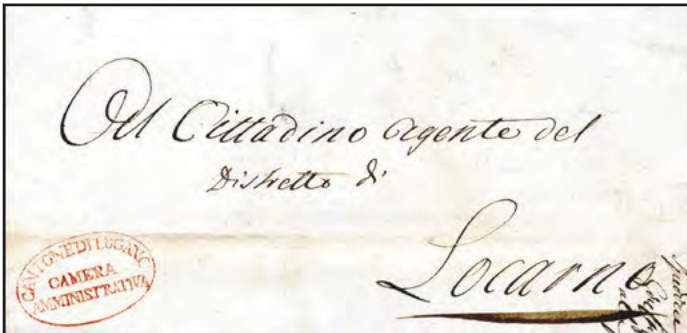 Al Cittadino Agente del
Distretto di
Locarno
CANTONE DI LUGANO
CAMERA
AMMINISTRATIVA